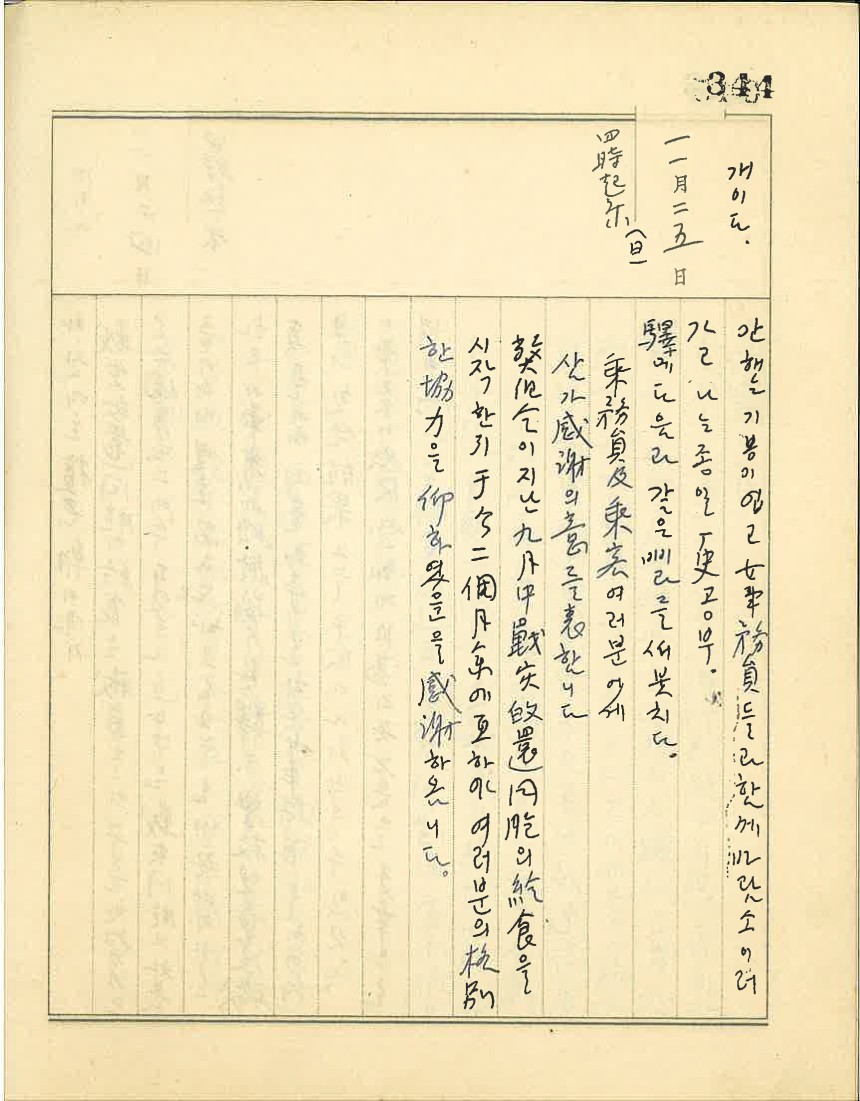 344
개이다.
一一月二五日
(日)
四時起不
안해는 기봉이 업고 女車務員들과 함께 바람 소이러
가고 나는 종일 史 공부.
驛에 다음과 갈은 삐라를 써 붓치다.
乘務員及乘客 여러분에게
삼가 感謝의 意를 表합니다
발서 이 지난 九月中 戰災的 還同胞의 給食을
시작한 이 于今 二個月余에 亘하야 여러분의 格別
한 協力을 仰하였음을 感謝하옵니다.